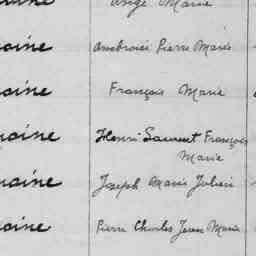 Ange Marie
oine Ambroise Pierre Marie
oine François Marie
oine Henri Laurent François
Marie
oine Joseph Marie Julien
oine Pierre Charles Jean Marie